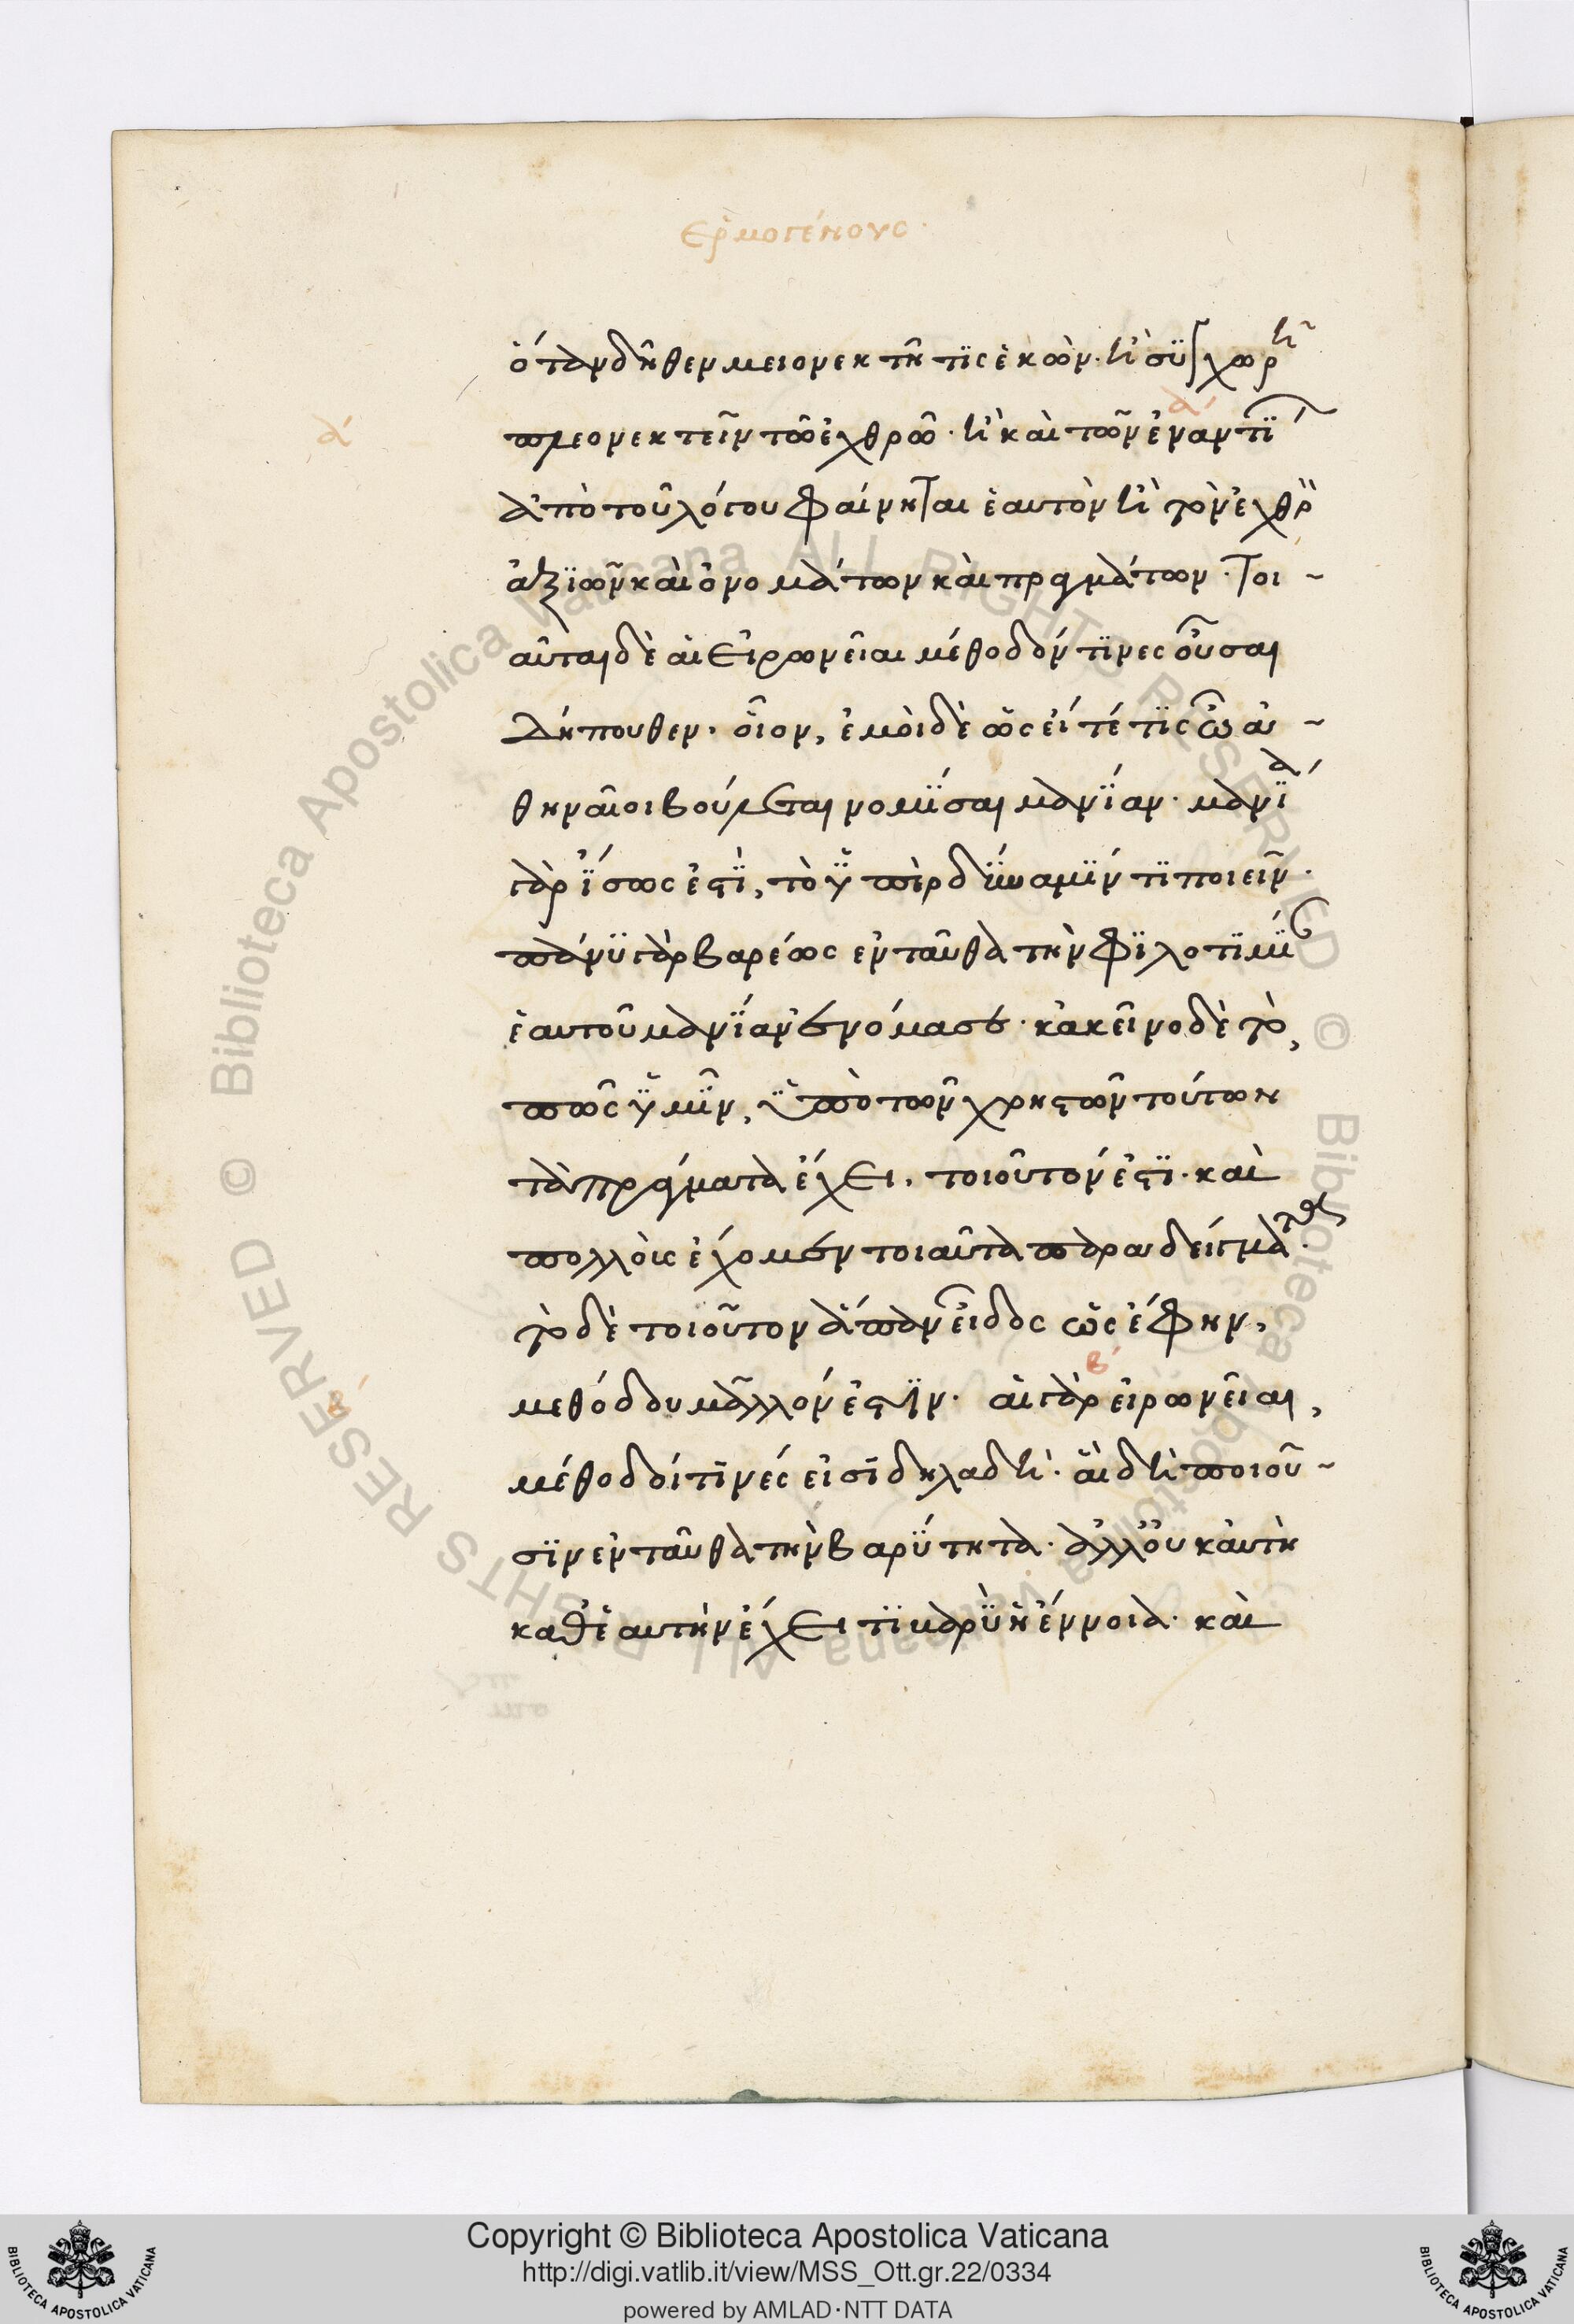 Ἑρμογένους·
ὅταν δῆθεν μειονεκτῆ τις ἑκὼν· ἢ συγχωρῆ
πλεονεκτεῖν τῶ ἐχθρῶ· ἢ καὶ τῶν ἐναντί
α´
α´
ἀπὸ τοῦ λόγου φαίνηται ἑαυτὸν ἢ τὸν ἐχθρὸ
ἀξιῶν καὶ ὀνομάτων καὶ πραγμάτων· τοι-
αῦται δὲ αἱ εἰρωνεῖαι μέθοδόν τινες οὖσαι
δήπουθεν· οἷον, ἐμοὶ δὲ ὡς εἴτέ τις ὦ ἀ-
θηναῖοι βούλεται νομίσαι μανίαν· μανία
γὰρ ἴσως ἐστὶ, τὸ ὑπὲρ δύναμίν τι ποιεῖν·
πάνυ γὰρ βαρέως ἐνταῦθα τὴν φιλοτιμί
ἑαυτοῦ μανίαν ὠνόμασε· κἀκεῖνο δὲ τὸ,
πῶς ὑμῖν, ὑπὸ τῶν χρηστῶν τούτων
τὰ πράγματα ἔχει, τοιοῦτόν ἐστι· καὶ
πολλοῖς ἔχομεν τοιαῦτα παραδείγματα·
τὸ δὲ τοιοῦτον ἅπαν εἶδος ὡς ἔφην,
μεθόδου μᾶλλόν ἐστιν· αἱ γὰρ εἰρωνεῖαι,
β´
β´
μέθοδοί τινές εἰσι δηλαδὴ· αἳ δὴ ποιοῦ-
σιν ἐνταῦθα τὴν βαρύτητα· ἀλλ' οὐκ αὐτὴ
καθ' ἑαυτὴν ἔχει τι βαρὺ ἡ ἔννοια· καὶ
Copyright © Biblioteca Apostolica Vaticana
http://digi.vatlib.it/view/MSS_Ott.gr.22/0334
powered by AMLAD·NTT DATA
BIBLIOTECA APOSTOLICA VATICANA
BIBLIOTECA APOSTOLICA VATICANA
© Biblioteca Apostolica Vaticana ALL RIGHTS RESERVED © Biblioteca Apostolica Vaticana ALL RIGHTS RESERVED